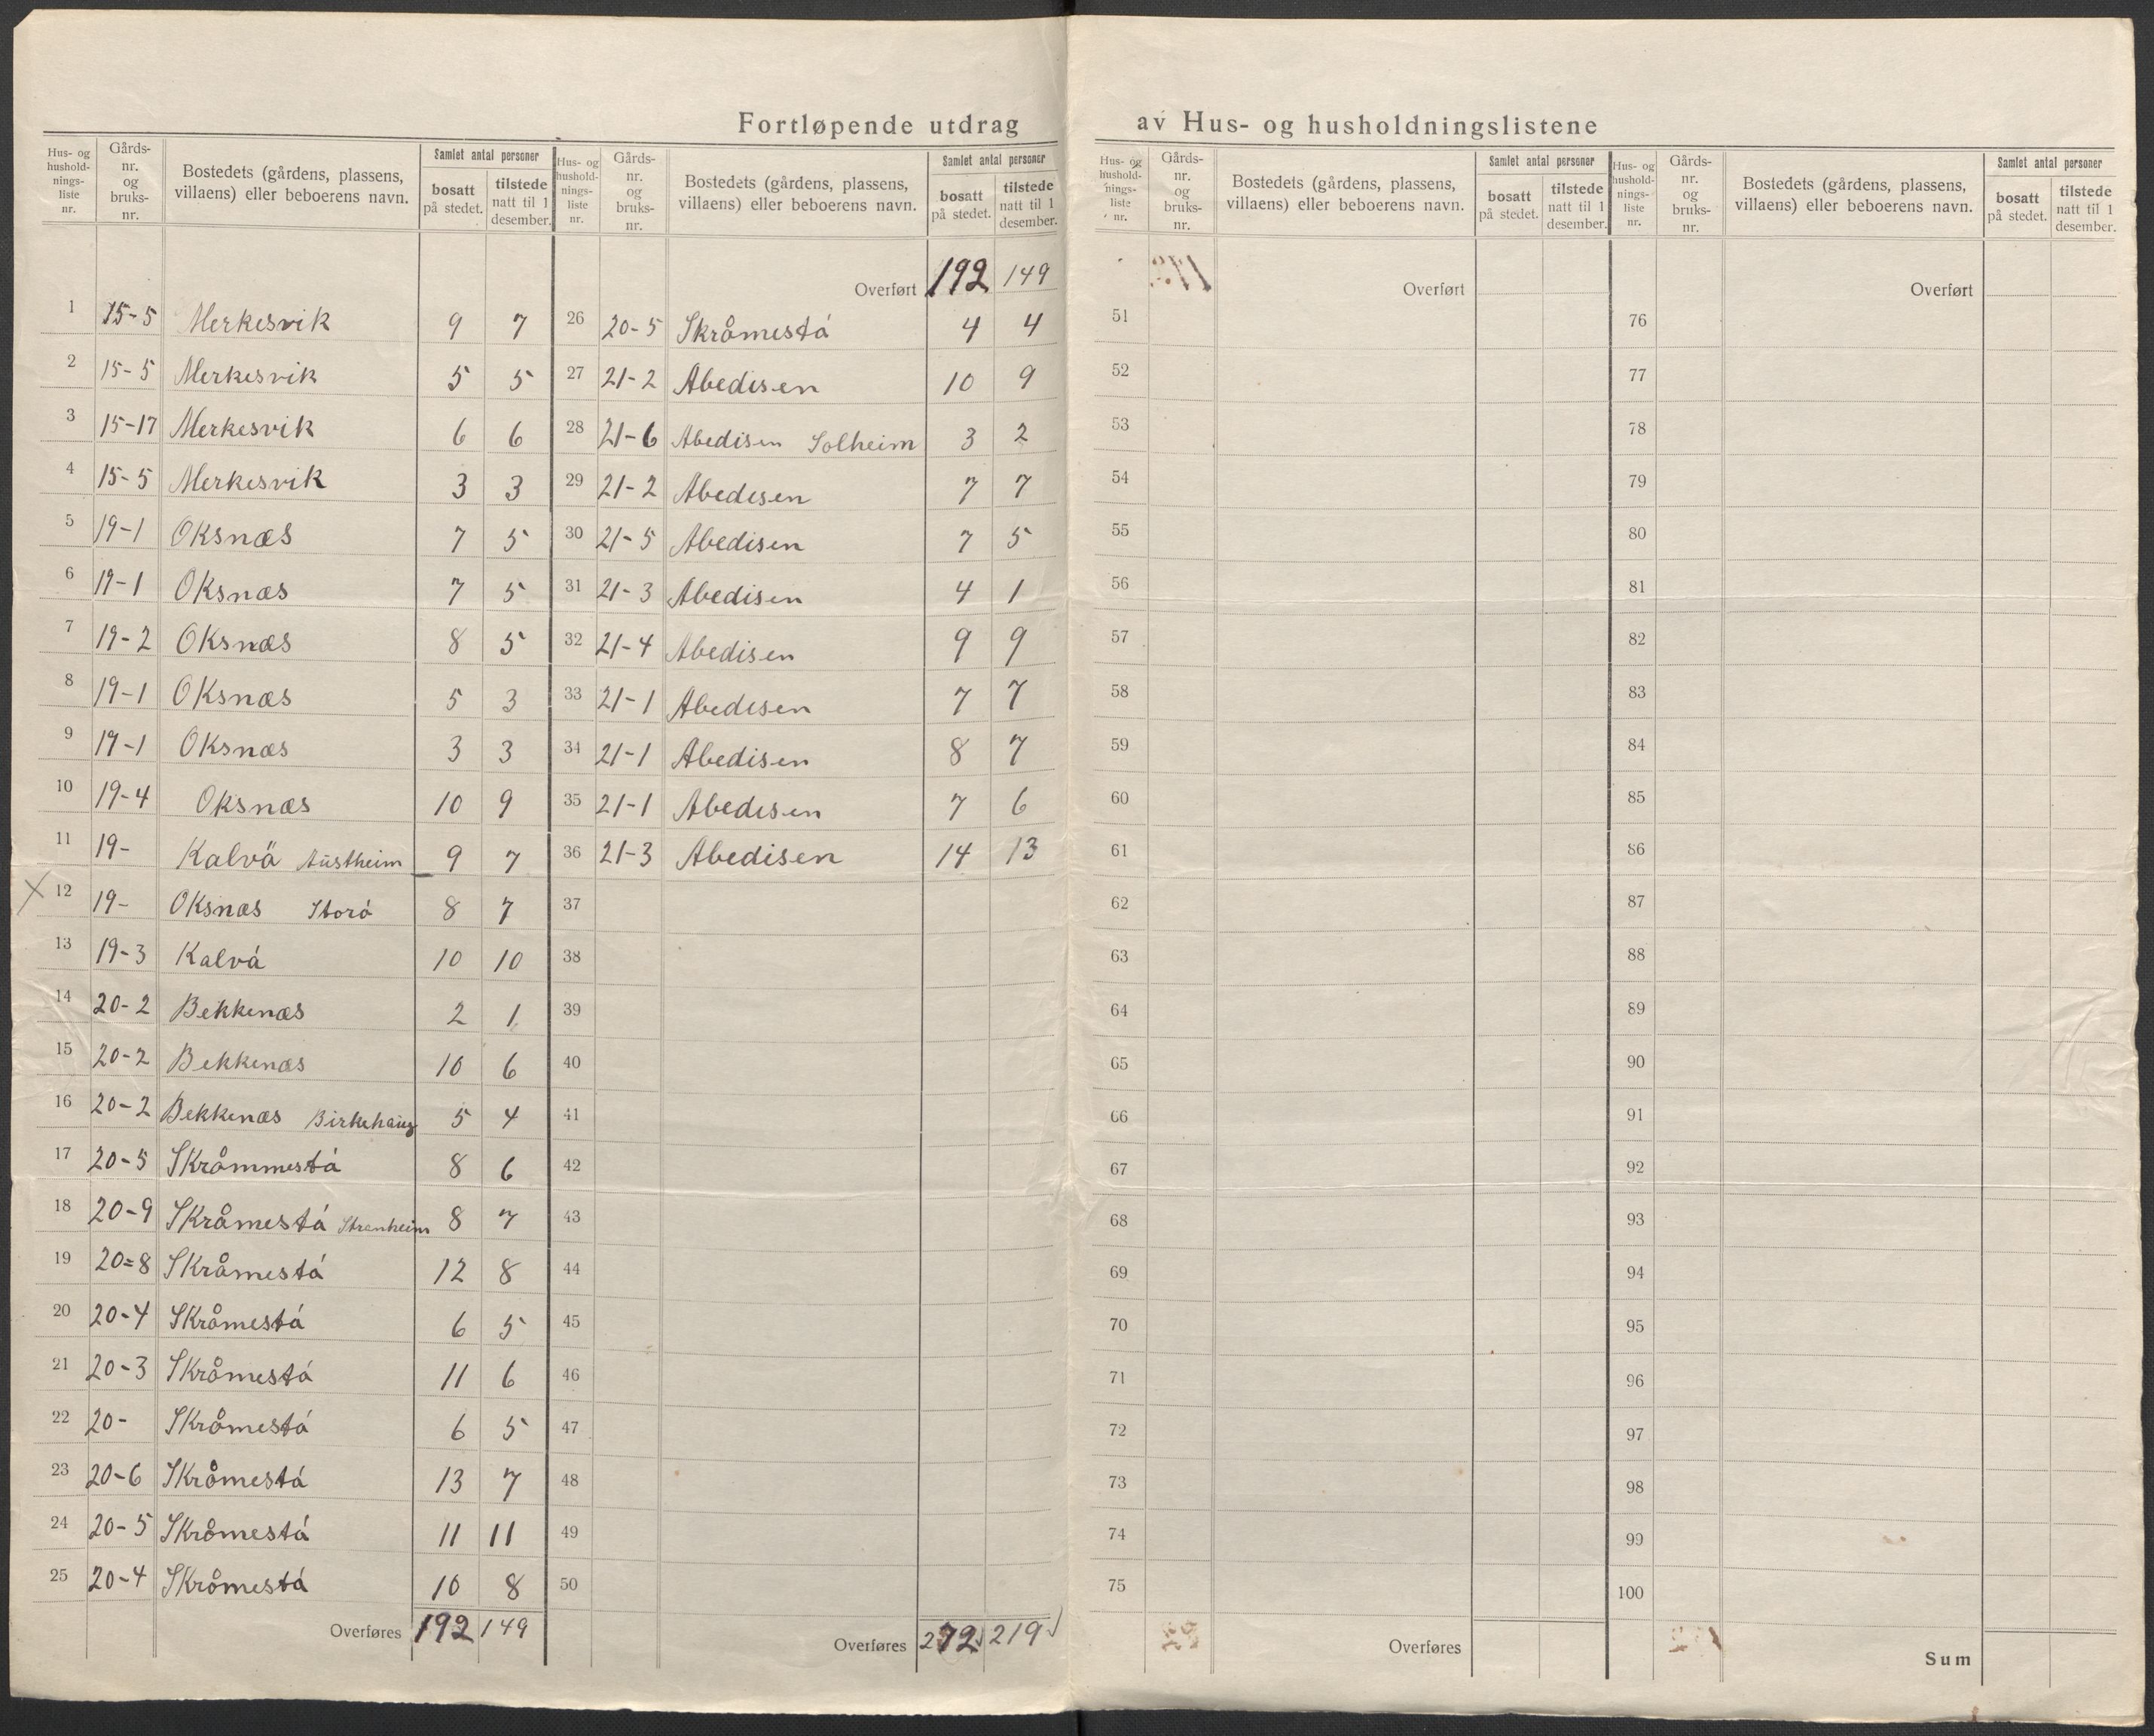 Fortløpende utdrag av Hus- og husholdningslistene
Hus- og hushold-nings-liste nr. Gårds-nr. og bruks-nr. Bostedets (gårdens, plassens, villaens) eller beboerens navn. Samlet antal personer bosatt på stedet. tilstede natt til 1 desember.
1 15-5 Merkesvik 9 7
2 15-5 Merkesvik 5 5
3 15-17 Merkesvik 6 6
4 15-5 Merkesvik 3 3
5 19-1 Oksnæs 7 5
6 19-1 Oksnæs 7 5
7 19-2 Oksnæs 8 5
8 19-1 Oksnæs 5 3
9 19-1 Oksnæs 3 3
10 19-4 Oksnæs 10 9
11 19- Kalvå Austheim 9 7
X 12 19- Oksnæs Storå 8 7
13 19-3 Kalvå 10 10
14 20-2 Bekkenæs 2 1
15 20-2 Bekkenæs 10 6
16 20-2 Bekkenæs Birkehaug 5 4
17 20-5 Skråmmestå 8 6
18 20-9 Skråmestå Stranheim 8 7
19 20=8 Skråmestå 12 8
20 20-4 Skråmestå 6 5
21 20-3 Skråmestå 11 6
22 20- Skråmestå 6 5
23 20-6 Skråmestå 13 7
24 20-5 Skråmestå 11 11
25 20-4 Skråmestå 10 8
Overføres 192 149
Hus- og hushold-nings-liste nr. Gårds-nr. og bruks-nr. Bostedets (gårdens, plassens, villaens) eller beboerens navn. Samlet antal personer bosatt på stedet. tilstede natt til 1 desember.
Overført 192 149
26 20-5 Skråmestå 4 4
27 21-2 Abedisen 10 9
28 21-6 Abedisen Solheim 3 2
29 21-2 Abedisen 7 7
30 21-5 Abedisen 7 5
31 21-3 Abedisen 4 1
32 21-4 Abedisen 9 9
33 21-1 Abedisen 7 7
34 21-1 Abedisen 8 7
35 21-1 Abedisen 7 6
36 21-3 Abedisen 14 13
37
38
39
40
41
42
43
44
45
46
47
48
49
50
Overføres 272 219
Hus- og hushold-nings-liste nr. Gårds-nr. og bruks-nr. Bostedets (gårdens, plassens, villaens) eller beboerens navn. Samlet antal personer bosatt på stedet. tilstede natt til 1 desember.
Overført
51
52
53
54
55
56
57
58
59
60
61
62
63
64
65
66
67
68
69
70
71
72
73
74
75
Overføres
Hus- og hushold-nings-liste nr. Gårds-nr. og bruks-nr. Bostedets (gårdens, plassens, villaens) eller beboerens navn. Samlet antal personer bosatt på stedet. tilstede natt til 1 desember.
Overført
76
77
78
79
80
81
82
83
84
85
86
87
88
89
90
91
92
93
94
95
96
97
98
99
100
Sum